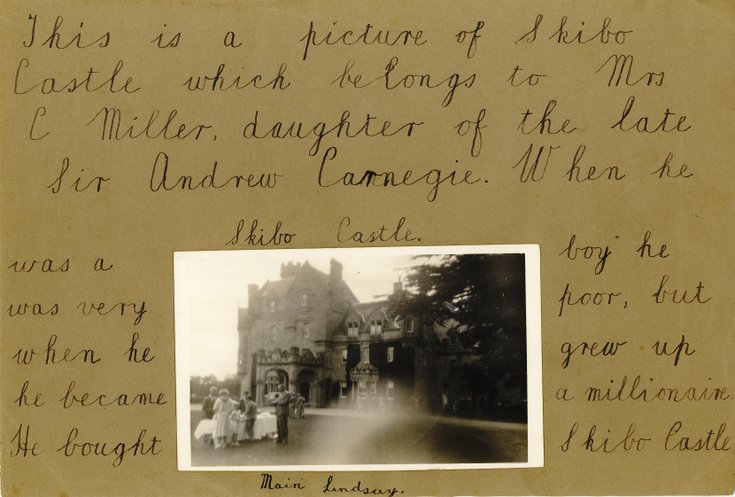 This is a picture of Skibo
Castle which belongs to Mrs
C Miller, daughter of the late
Sir Andrew Carnegie. When he
Skibo Castle.
was a boy he
was very poor, but
when he grew up
he became a millionaire.
He bought Skibo Castle
Mairi Lindsay.